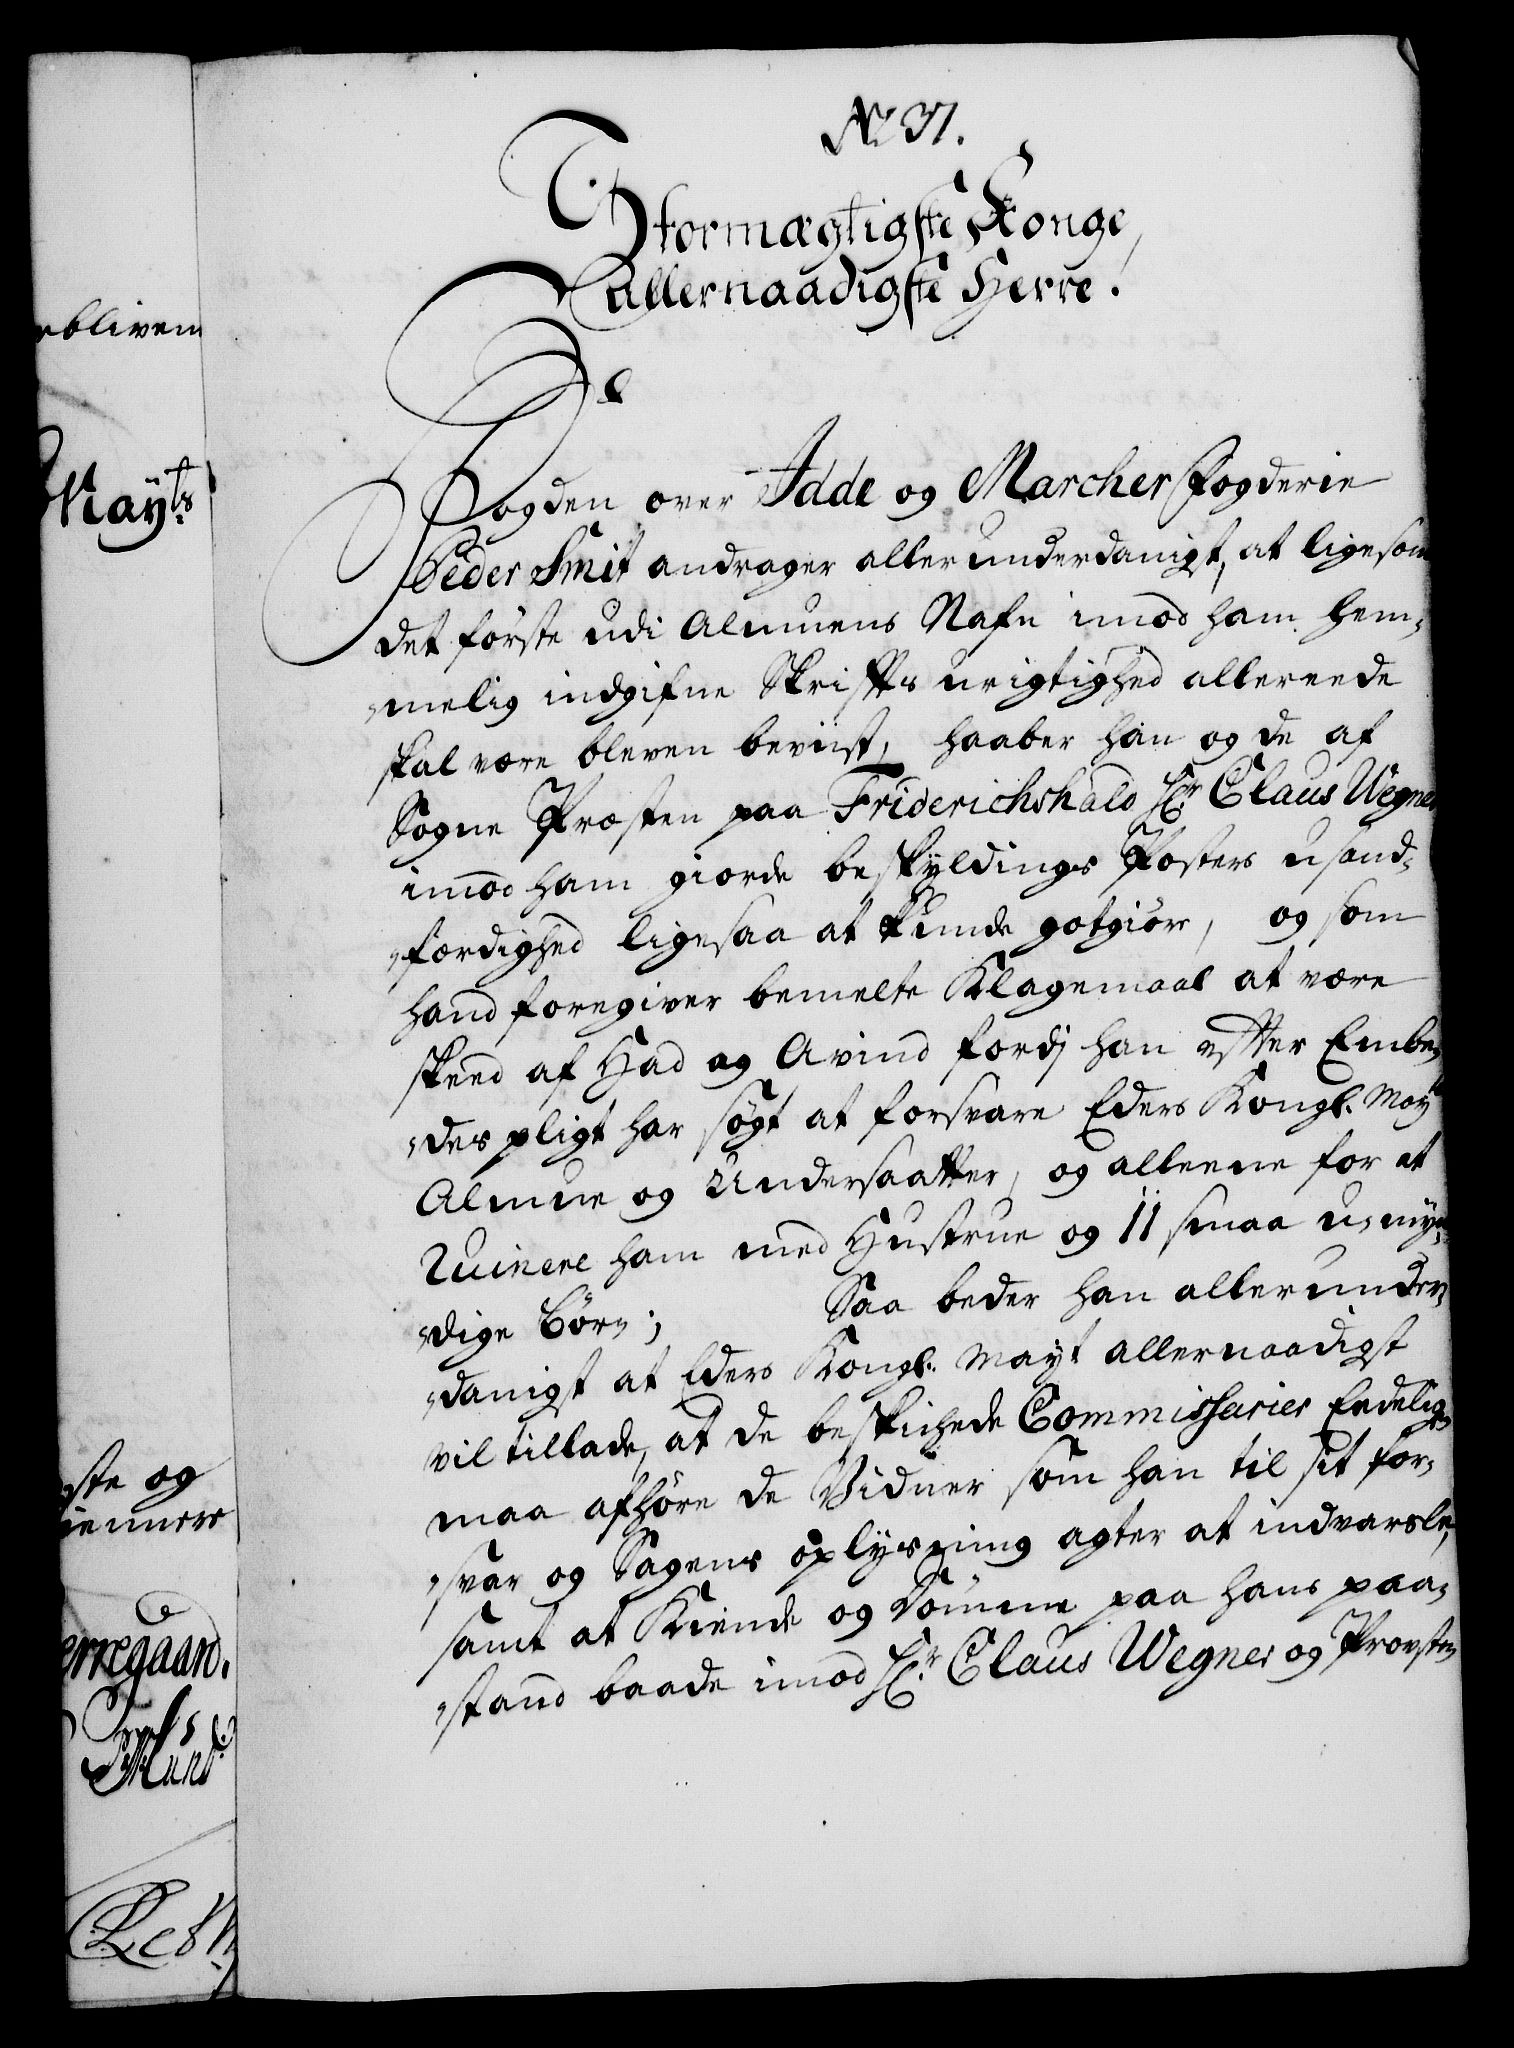 No 37.
Stormægtigste Konge,
Allernaadigste Herre!
Fogden over Idde og Marcher Fogderie
Peder Smit andrager allerunderdanigst, at ligesom
det förste udi Almuens Nafn imod ham hem-
melig indgifne Skriffts urigtighed allereede
skal være bleven beviist, haaber han og de af
Sogne Præsten paa Friderichshald Hr Claus Wegner
imod ham giorde beskyldings Posters usand-
færdighed ligesaa at kunde gotgiöre, og som
hand foregiver bemelte Klagemaal at være
skeed af Had og Avind fordj han effter Embe-
des pligt har søgt at forsvare Eders Kongl. Mayts
Almue og Undersaatter, og alleene for at
Ruinere ham med Hustrue og 11 smaa u-myn-
dige Börn; Saa beder han allerunder-
danigst at Eders Kongl. Mayt allernaadigst
vil tillade, at de beskichede Commissarier Endelig
maa afhöre de Vidner som han til sit for-
svar og Sagens oplysning agter at indvarsle,
samt at Kiende og Dömme paa hans paa-
stand baade imod Hr Claus Wegner og Provsten
ebliven
Mayts
ste og
ienere
erregaard.
Lesk